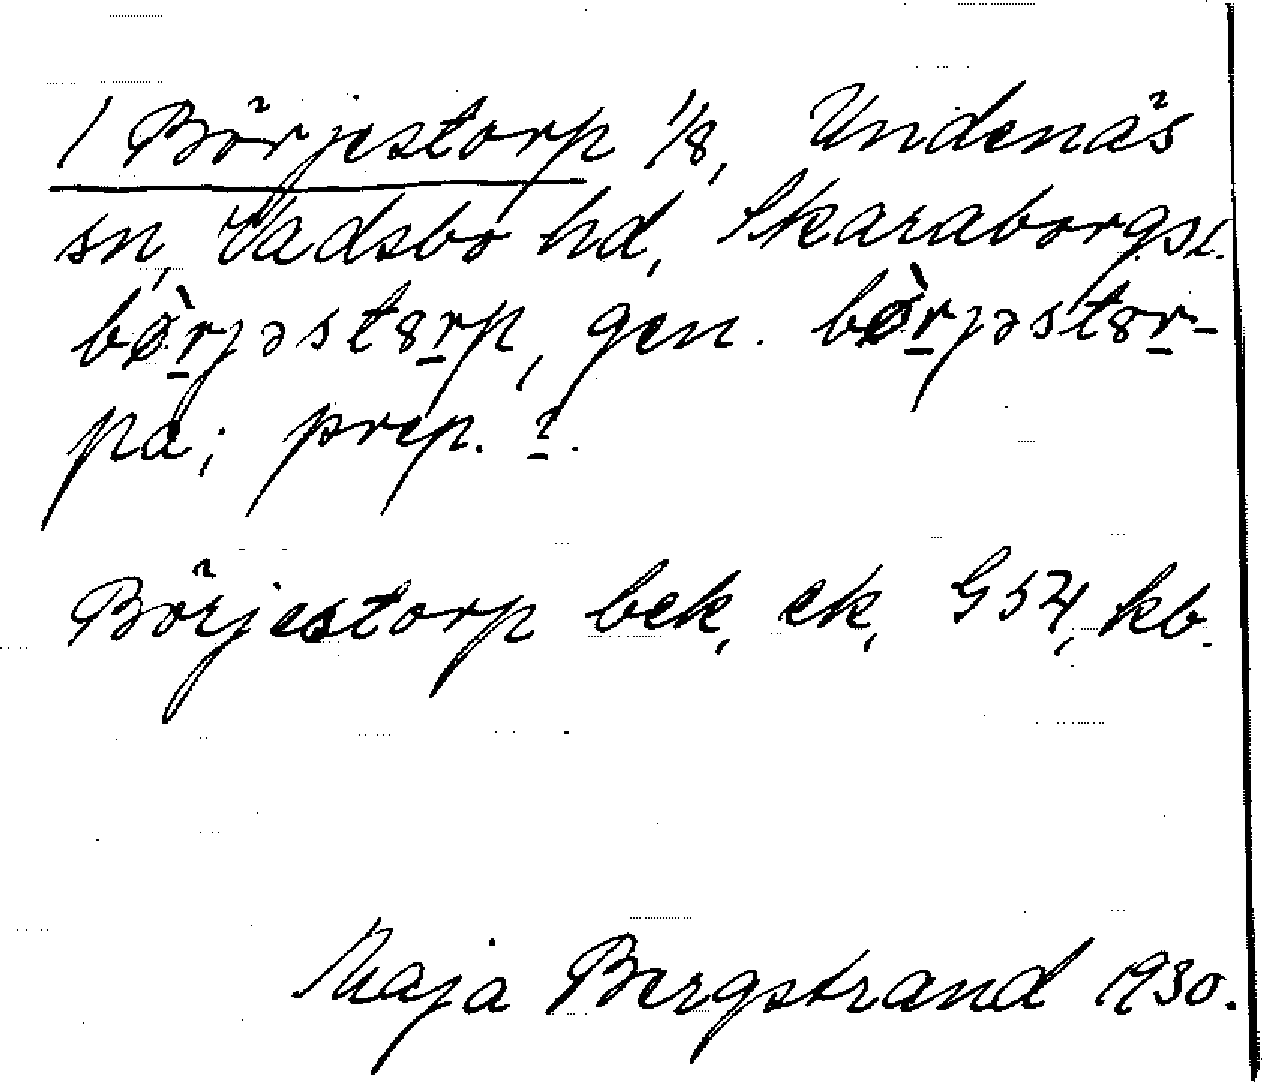 1 Börjestorp 1/8, Undenäs
sn, Vadsbo hd, Skaraborgs l.
bö̀r̠jəstȣr̠p, gen. bö̀r̠jəstȣr̠-
pa; prep. ?.
Börjestorp bek, ek, G 54, kb.
Maja Bergstrand 1930.